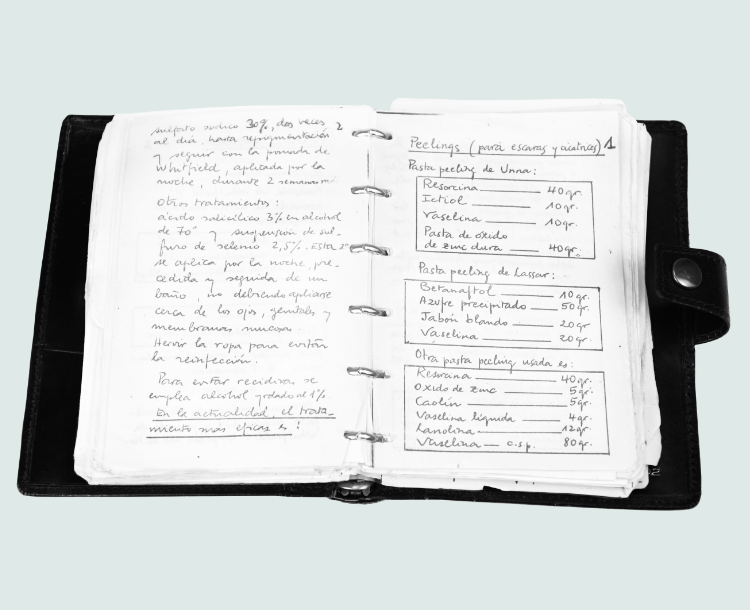 sulfato sódico 30%, dos veces 2
al día, hasta repigmentación
y seguir con la pomada de
Whitfield, aplicada por la
noche, durante 2 semanas
Otros tratamientos:
ácido salicílico 3% en alcohol
de 70° y suspensión de sul-
furo de selenio 2,5%. Esta 2ª
se aplica por la noche, pre-
cedida y seguida de un
baño, no debiendo aplicarse
cerca de los ojos, genitales y
membranas mucosas.
Hervir la ropa para evitar
la reinfección.
Para evitar recidivas se
emplea alcohol yodado al 1%
En la actualidad, el trata-
miento más eficaz es:
Peelings (para escaras y cicatrices) 1
Pasta peeling de Unna:
Resorcina 40 gr.
Ictiol 10 gr.
Vaselina 10 gr.
Pasta de óxido
de zinc dura 40 gr.
Pasta peeling de Lassar:
Betanaftol 10 gr.
Azufre precipitado 50 gr.
Jabón blando 20 gr
Vaselina 20 gr.
Otra pasta peeling usada es:
Resorcina 40 gr.
Oxido de zinc 5 gr.
Caolín 5 gr.
Vaselina líquida 4 gr.
Lanolina 12 gr.
Vaselina c.s.p. 80 gr.